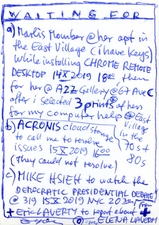 WAITING FOR
a) Marlis Momber @ her apt in
the East Village (i have keys)
while installing CHROME REMOTE
DESKTOP 14 X 2019 18E them
for her @ A2Z Gallery @ 6th AVE C
after i selected 3 prints of hers
for my computer help @ East
Village
in
70s+
80s
b) ACRONIS cloud storage
to call me to resolve
issues 15 X 2019
(they could not resolve)
c) MIKE HSIEH to watch the
DEMOCRATIC PRESIDENTIAL DEBATE
@ 319 15 X 2019 NYC 20
+ ERIC LAVERTY to report about
HELENA LAVERTY